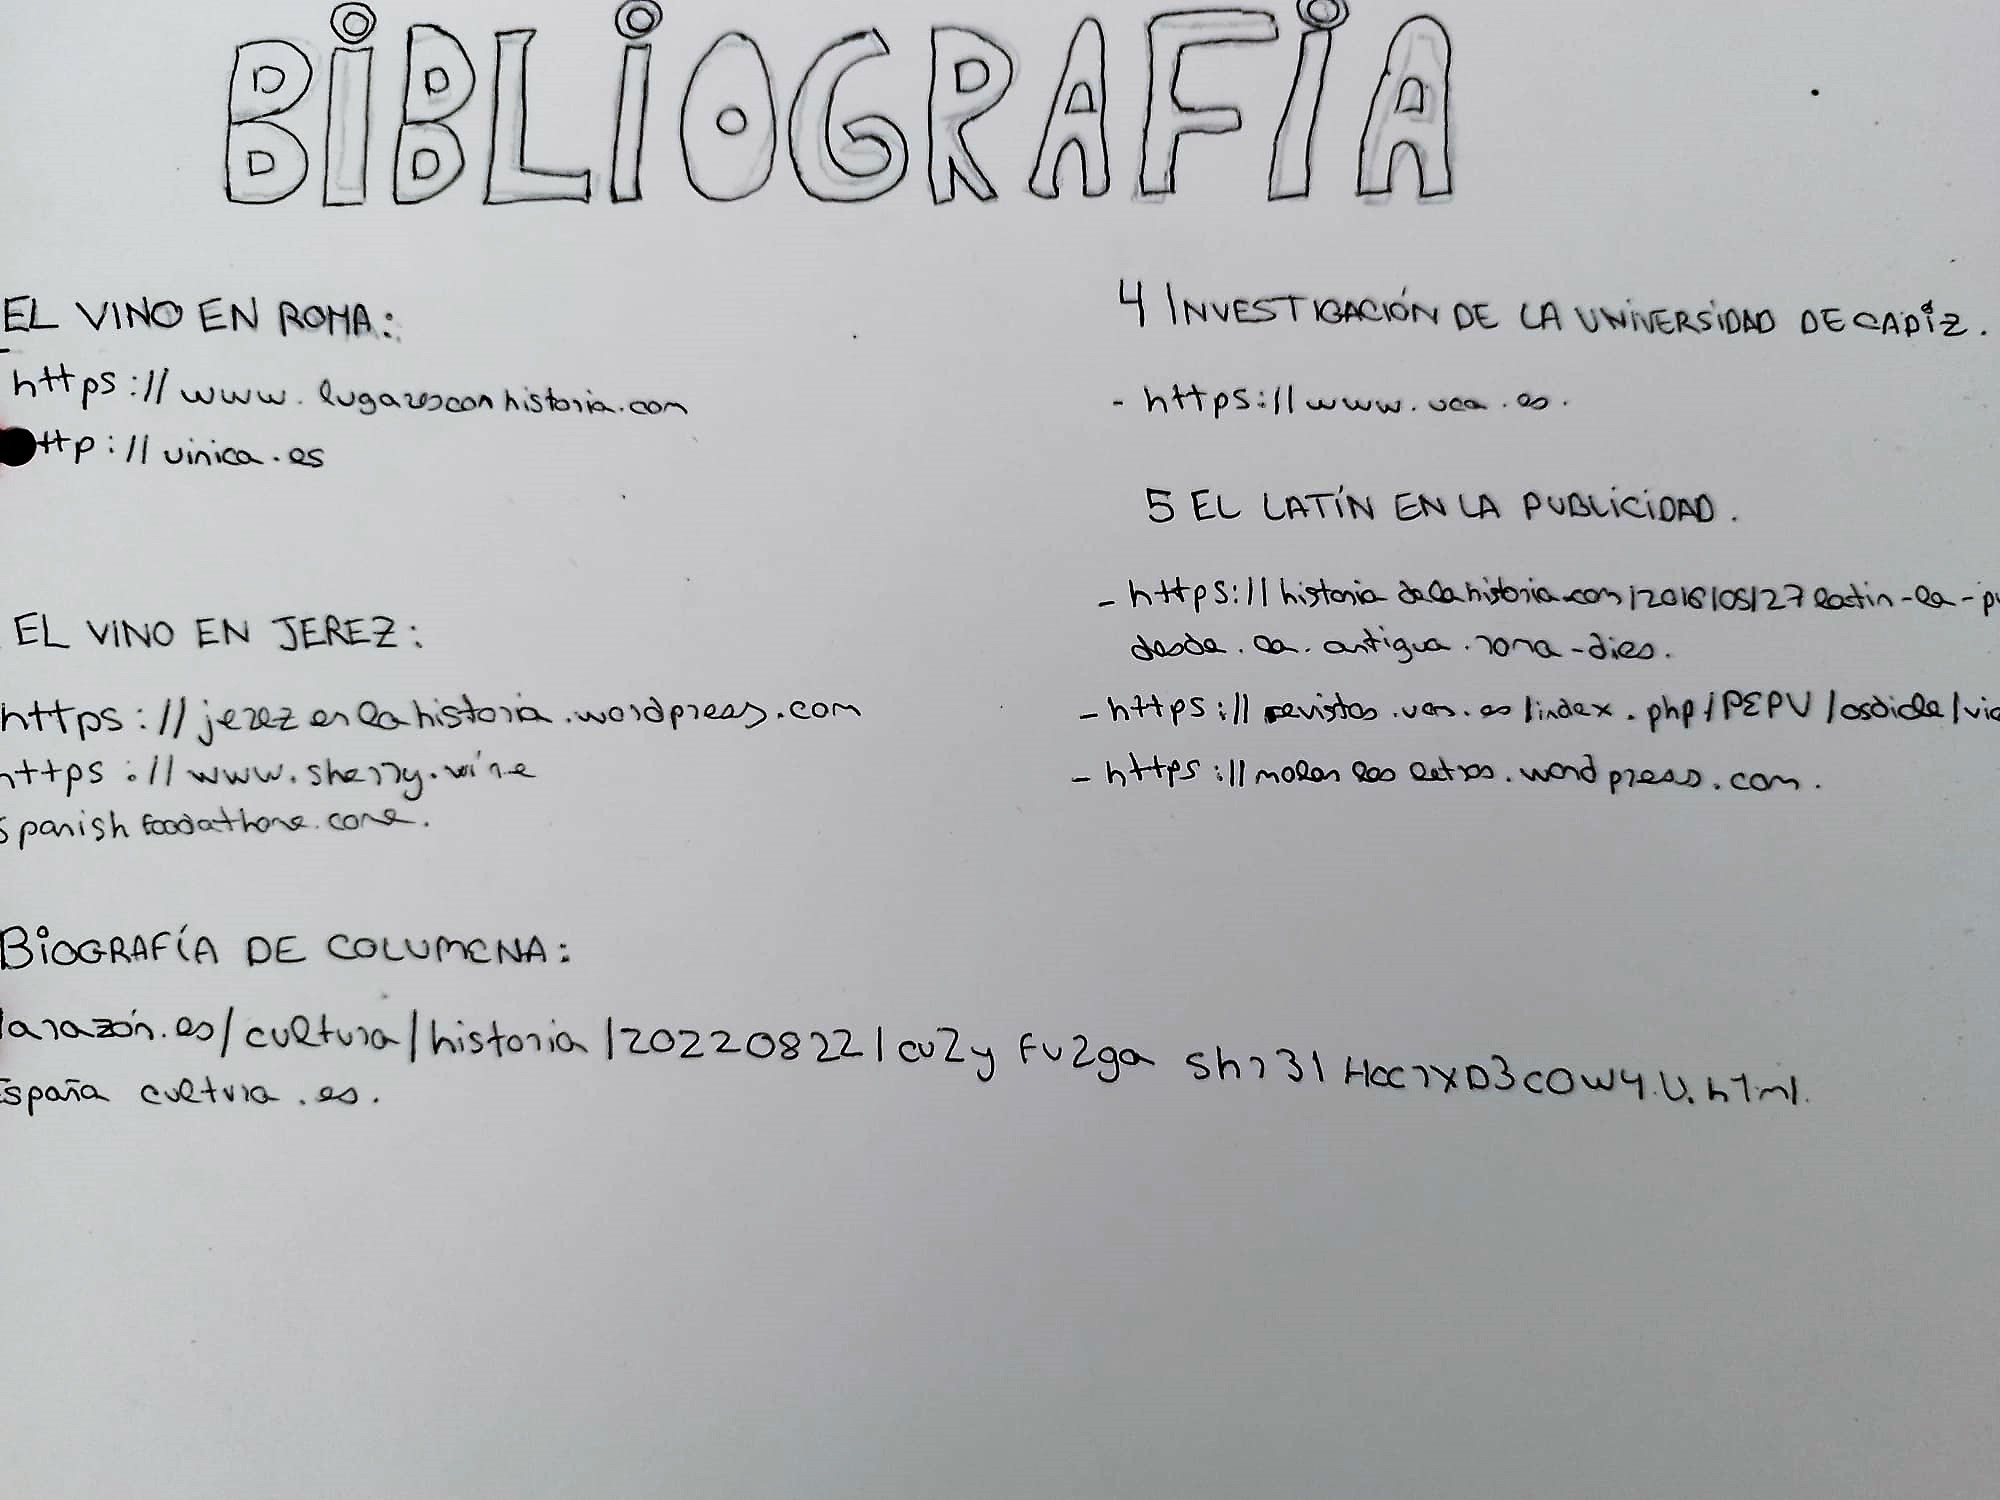 BIBLIOGRAFIA
EL VINO EN ROMA:
https://www.lugaresconhistoria.com
ttp://vinica.es
EL VINO EN JEREZ:
https://jerezenlahistoria.wordpress.com
https://www.sherry.wine
Spanishfoodathome.come.
BIOGRAFÍA DE COLUMENA:
larazón.es/cultura/historia/20220822/cu2y fu2ga
España cultura.es.
4 INVESTIGACIÓN DE LA UNIVERSIDAD DE CADIZ.
- https://www.uca.es.
5 EL LATÍN EN LA PUBLICIDAD.
- https://historia delahistoria.com/2016/05/27latin-la-pu
desde.la.antigua.roma-dies.
- https://revistas.um.es/index.php/PEPU/
- https://molan las letras.wordpress.com.